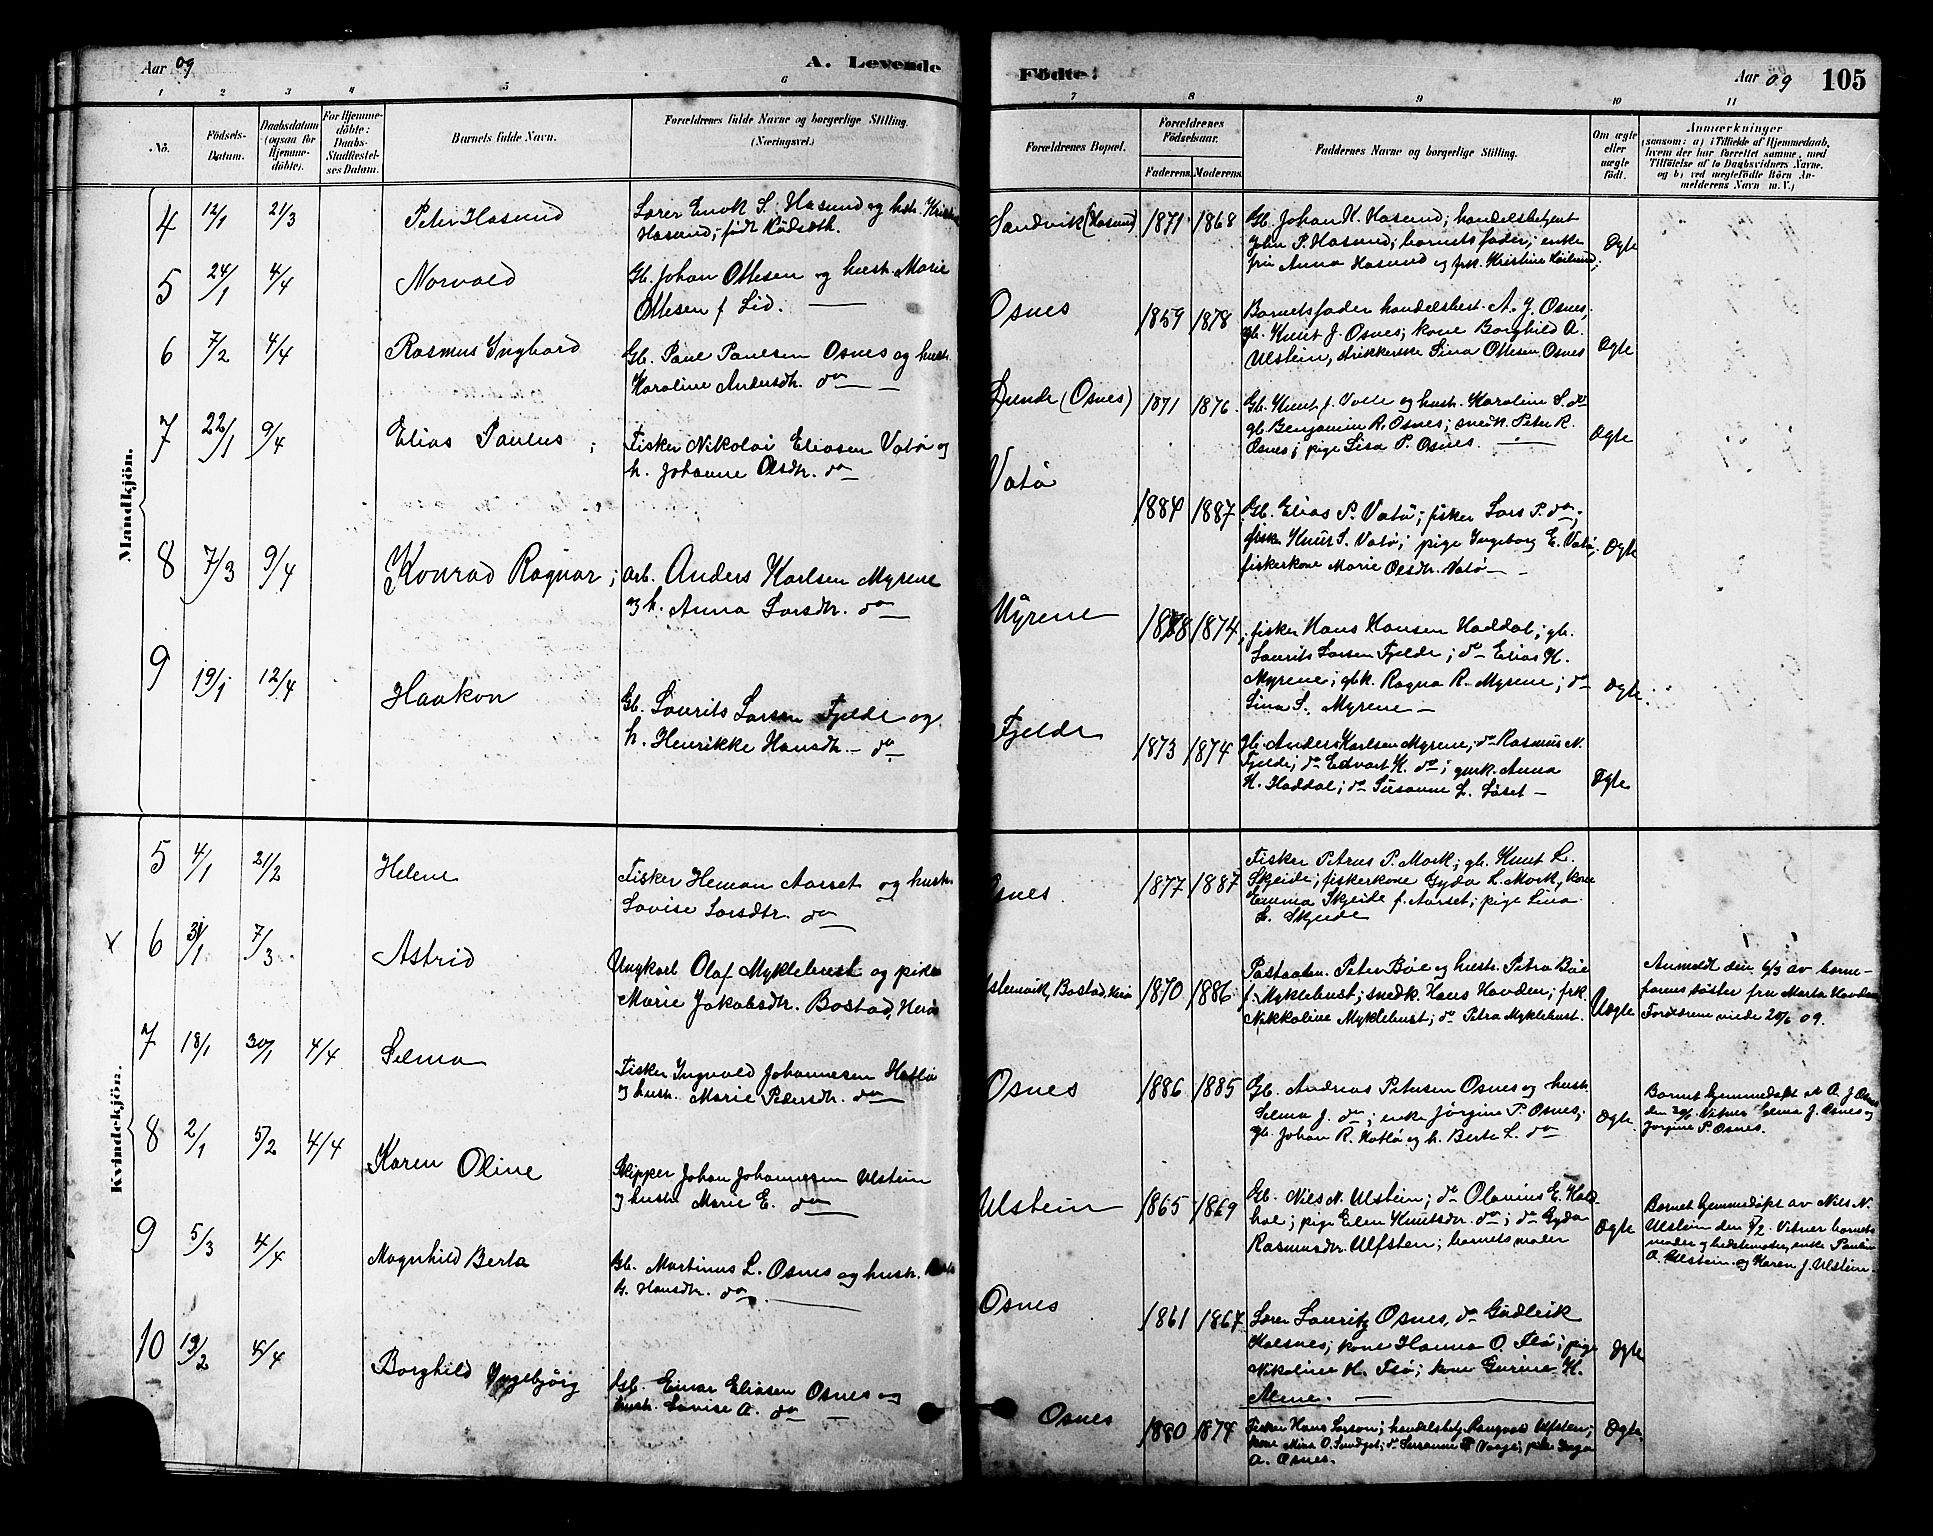 Aar 09
A. Levende
Födte.
Aar 09
105
1 2 3 4 5 6 7 8 9 10 11
Nö.
Födsels-
Datum.
Daabsdatum
(ogsaa for
Hjemme-
döbte).
For Hjemme-
döbte:
Daabs-
Stadfæstel-
ses Datum.
Barnets fulde Navn.
Forældrenes fulde Navne og borgerlige Stilling.
(Næringsvei.)
Forældrenes Bopæl.
Forældrenes
Födselsaar.
Faderens. Moderens.
Faddernes Navne og borgerlige Stilling.
Om ægte
eller
uægte
født.
Anmærkninger
(saasom: a) i Tilfælde af Hjemmedaab,
hvem der har forrettet samme, med
Tilföielse af to Daabsvidners Navne,
og b) ved uægtefödte Börn An-
melderens Navn m. V.)
Mandkjön.
4 12/1 21/3 Peter Hasund
Lærer Enok S. Hasund og hust. Kristine
Hasund, født Rødsæth.
Sandvik (Hasund) 1871 1868
Gb. Johan K. Hasund; handelsbetjent
John P. Hasund; barnets fader; enke
fru Anna Hasund og frk. Kristine
Ægte
5 24/1 4/4 Norvald
Gb. Johan Ottesen og hust. Marie
Ottesen f Lid.
Osnes 1859 1878
Barnets fader handelsbest. A. J. Osnes,
gb. Knut J. Osnes; kone Borghild A.
Ulstein, Lina Ottesen Osnes
Ægte
6 7/2 4/4 Rasmus Ingbard
Gb. Paul Paulsen Osnes og hust.
Karoline Andersdtr. do
(Osnes) 1871 1876
Gb. Knut J. og hust. Karoline S. do
gb. Benjamin R. Osnes; Peter R.
Osnes; pige Lisa P. Osnes.
Ægte
7 22/1 9/4 Elias Paulus;
Fisker Nikolai Eliasen Vatø og
h. Johanne Olsdtr. do
Vatø
1884 1887
Gb. Elias P. Vatø; fisker Lars P. do;
fisker Knut S. Vatø; pige Ingeborg E. Vatø;
fiskerkone Marie Olsdtr. Vatø
Ægte
8 7/3 9/4 Konrad Ragnar;
Arb. Anders Karlsen Myrene
og h. Anna Larsdtr. do
Myrene 1874
fisker Hans Hansen Haddal; gb.
Laurits Larsen Fjelde; do Elias H.
Myrene; gbk. Ragna R. Myrene; do
Lina S. Myrene
Ægte
9 19/1 12/4 Haakon
Gb. Laurits Larsen Fjelde og
h. Henrikke Hansdtr. do
Fjelde 1873 1874
Gb. Anders Karlsen Myrene; do Rasmus N.
Fjelde; do Edvart K. do; Anna
H. Haddal; do Susanne L. Løset
Ægte
Kvindekjön.
5 4/1 21/2 Helene
Fisker Heman Aarset og hust.
Lovise Larsdtr. do
Osnes 1877 1887
Fisker Petrus P. Mork; gb. Knut L.
Skjeide; fiskerkone Gyda L. Mork, kone
Emma Skjeide f. Aarset; pige Lina
L. Skjeide
6 31/1 7/3 Astrid
Ungkarl Olaf Myklebust og pike
Marie Jakobsdtr. Bostad, Herø
Ulsteinvik, Bostad, Herø 1870 1886
Peter Bøe og hustr. Petra Bøe
f. Myklebust; snedk. Hans Hovden; frk.
Nikkoline Myklebust; do Petra Myklebust.
Uægte
Anmeldt den 6/3 av barne-
farens søster fru Marta Hovden
Forældrene viede 20/6 09.
7 18/1 30/1 4/4 Selma
Fisker Ingvald Johannesen Hatlø
og hust. Marie Pedersdtr. do
Osnes 1886 1885
Gb. Andreas Petersen Osnes og hust.
Selma J. do; enke Jørgine P. Osnes;
gb. Johan R. Hatlø og h. Berte L. do
Ægte
Barnet hjemmedøpt av A. J. Osnes
den 30/1. Vitner Selma J. Osnes og
Jørgine P. Osnes.
8 2/1 5/2 4/4 Karen Oline
Skipper Johan Johannesen Ulstein
og hustr. Marie E. do
Ulstein 1865 1869
Gb. Nils N. Ulstein; do Olavius E.
pige Elen Knutsdtr. do; do Gyda
Rasmusdtr. Ulfsten; barnets moder
Ægte
Barnet hjemmedøpt av Nils N.
Ulstein den 5/2. Vitner barnets
moder og bedstemoder, enke Pauline
A. Ulstein og Karen J. Ulstein.
9 5/3 4/4 Magnhild Berta
Gb. Martinus L. Osnes og hustr.
G. Hansdtr. do
Osnes 1861 1867
Lærer Lauritz Osnes, do Gudleik
Kalsnes; kone Hanna O. Flø; pige
Nikoline H. Flø; kone Gurine H.
Alme.
Ægte
10 13/2 4/4 Borghild Ingebjørg
Gb. Einar Eliasen Osnes og
hust. Lovise A. do
Osnes 1880 1874
Fisker Hans Larson; handelsbetj. Rangvald Ulfsten;
kone Mina O. do Susanne P. Vaage; pike Inga
A. Osnes.
Ægte